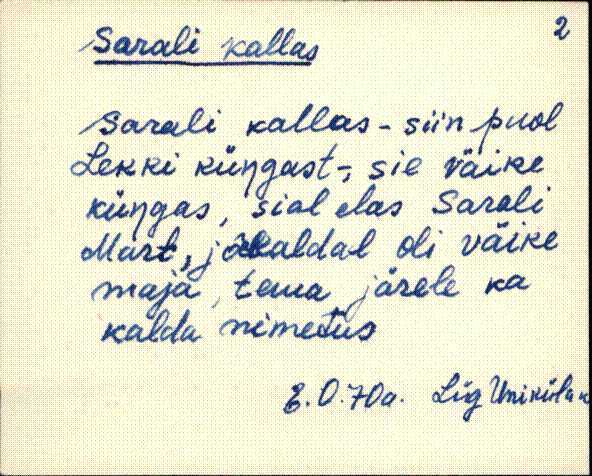 2
Sarali kallas
Sarali kallas - siin puol
Lekki küŋgast -, sie väike
küŋgas, sial elas Sarali
Mart, jõekaldal oli väike
maja, tema järele ka
kalda nimetus
E.O. 70a. Liig Uniküla